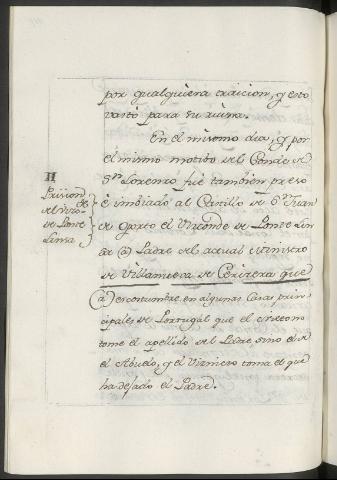 por qualquiera traicion, y esto
vastó para su ruina.
En el mismo dia, y por
el mismo motibo del Conde de
Sn. Lorenzo fué tambien preso
é imbiado al Castillo de Sn. Juan
de Oporto el Vizconde de Ponte Lim
a (a) Padre del actual
de Villanueva de Cervera que
(a) es costumbre en algunas Casas prin-
cipales de Portugal que el
tome el apellido del Padre sino el de
el Abuelo, y el Viznieto toma el que
ha dejado el Padre.
H
Prision
del Vizc
de Ponte
Lima